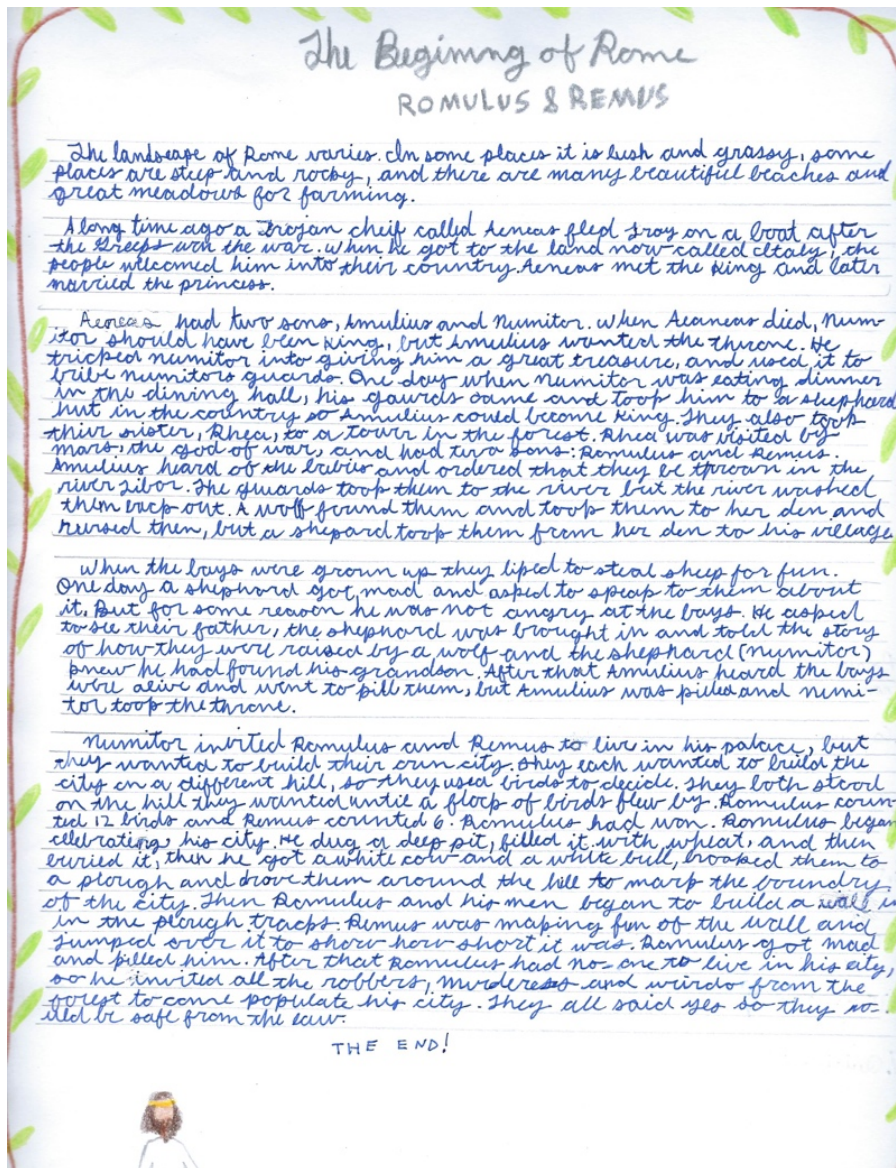 The Begining of Rome
ROMULUS & REMUS
The landscape of Rome varies. In some places it is lush and grassy, some
places are steep and rocky, and there are many beautiful beaches and
great meadows for farming.
A long time ago a Trojan cheif called Aeneas fled Troy on a boat after
the Greeks won the war. When he got to the land now called Italy, the
people wlecomed him into their country. Aeneas met the King and later
married the princess.
Aeneas had two sons, Amulius and Numitor. When Aeaneas died, Num-
itor should have been King, but Amulius wanted the throne. He
tricked Numitor into giving him a great treasure, and used it to
bribe Numitors guards. One day when Numitor was eating dinner
in the dining hall, his gaurds came and took him to a shephard
hut in the country so Amulius could become King. They also took
thier sister, Rhea, to a tower in the forest. Rhea was visited by
mars, the god of war, and had two sons: Romulus and Remus.
Amulius heard of the babies and ordered that they be thrown in the
river Tibor. The guards took them to the river but the river washed
them back out. A wolf found them and took them to her den and
nursed them, but a shepard took them from her den to his village
When the boys were grown up they liked to steal sheep for fun.
One day a shephard got mad and asked to speak to them about
it. But for some reason he was not angry at the boys. He asked
to see their father, the shephard was brought in and told the story
of how they were raised by a wolf and the shephard (Numitor)
knew he had found his grandson. After that Amulius heard the boys
were alive and went to kill them, but Amulius was killed and Numi-
tor took the throne.
Numitor invited Romulus and Remus to live in his palace, but
they wanted to build their own city. They each wanted to build the
city on a different hill, so they used birds to decide. They both stood
on the hill they wanted until a flock of birds flew by. Romulus coun
ted 12 birds and Remus counted 6. Romulus had won. Romulus began
celebrating his city. He dug a deep pit, filled it with wheat, and then
buried it, then he got a white cow and a white bull, hooked them to
a plough and drove them around the hill to mark the boundry
of the city. Then Romulus and his men began to build a wall
in the plough tracks. Remus was making fun of the wall and
jumped over it to show how short it was. Romulus got mad
and killed him. After that Romulus had no-one to live in his city,
so he invited all the robbers, murderess and wirdo from the
forest to come populate his city. They all said yes so they wo-
uld be safe from the law.
THE END!